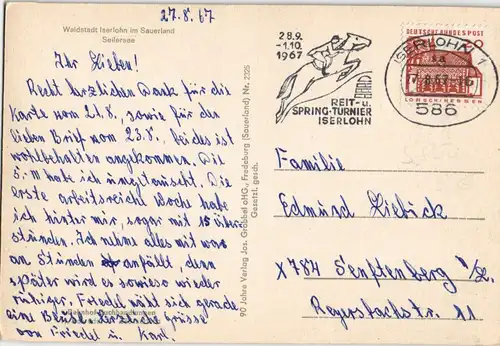 27.8.67
Waldstadt Iserlohn im Sauerland
Seilersee
Ihr Lieben!
Recht herzlichen Dank für die
Karte vom 21.8., sowie für den
lieben Brief vom 23.8. beides ist
wohlbehalten angekommen. Die
5.-M habe ich umgetauscht. Die
erste arbeitsreiche Woche habe
ich hinter mir, sogar mit 15 Über-
stunden. Ich nehme alles mit was
an Stunden anfällt, denn
später wird es sowieso wieder
ruhiger. Friedel näht sich gerade
eine Bluse. Herzliche Grüsse
von Friedel u. Karl.
90 Jahre Verlag Jos. Grobbel oHG., Fredeburg (Sauerland) Nr. 2325
Gesetzl. gesch.
28.9.
-1.10.
1967
REIT- u.
SPRING-TURNIER
ISERLOHN
DEUTSCHE BUNDESPOST
LORSCH/HESSEN
ISERLOHN 1
586
Familie
Edmund Liebick
X 784 Senftenberg N/L.
Reyersbachstr. 11